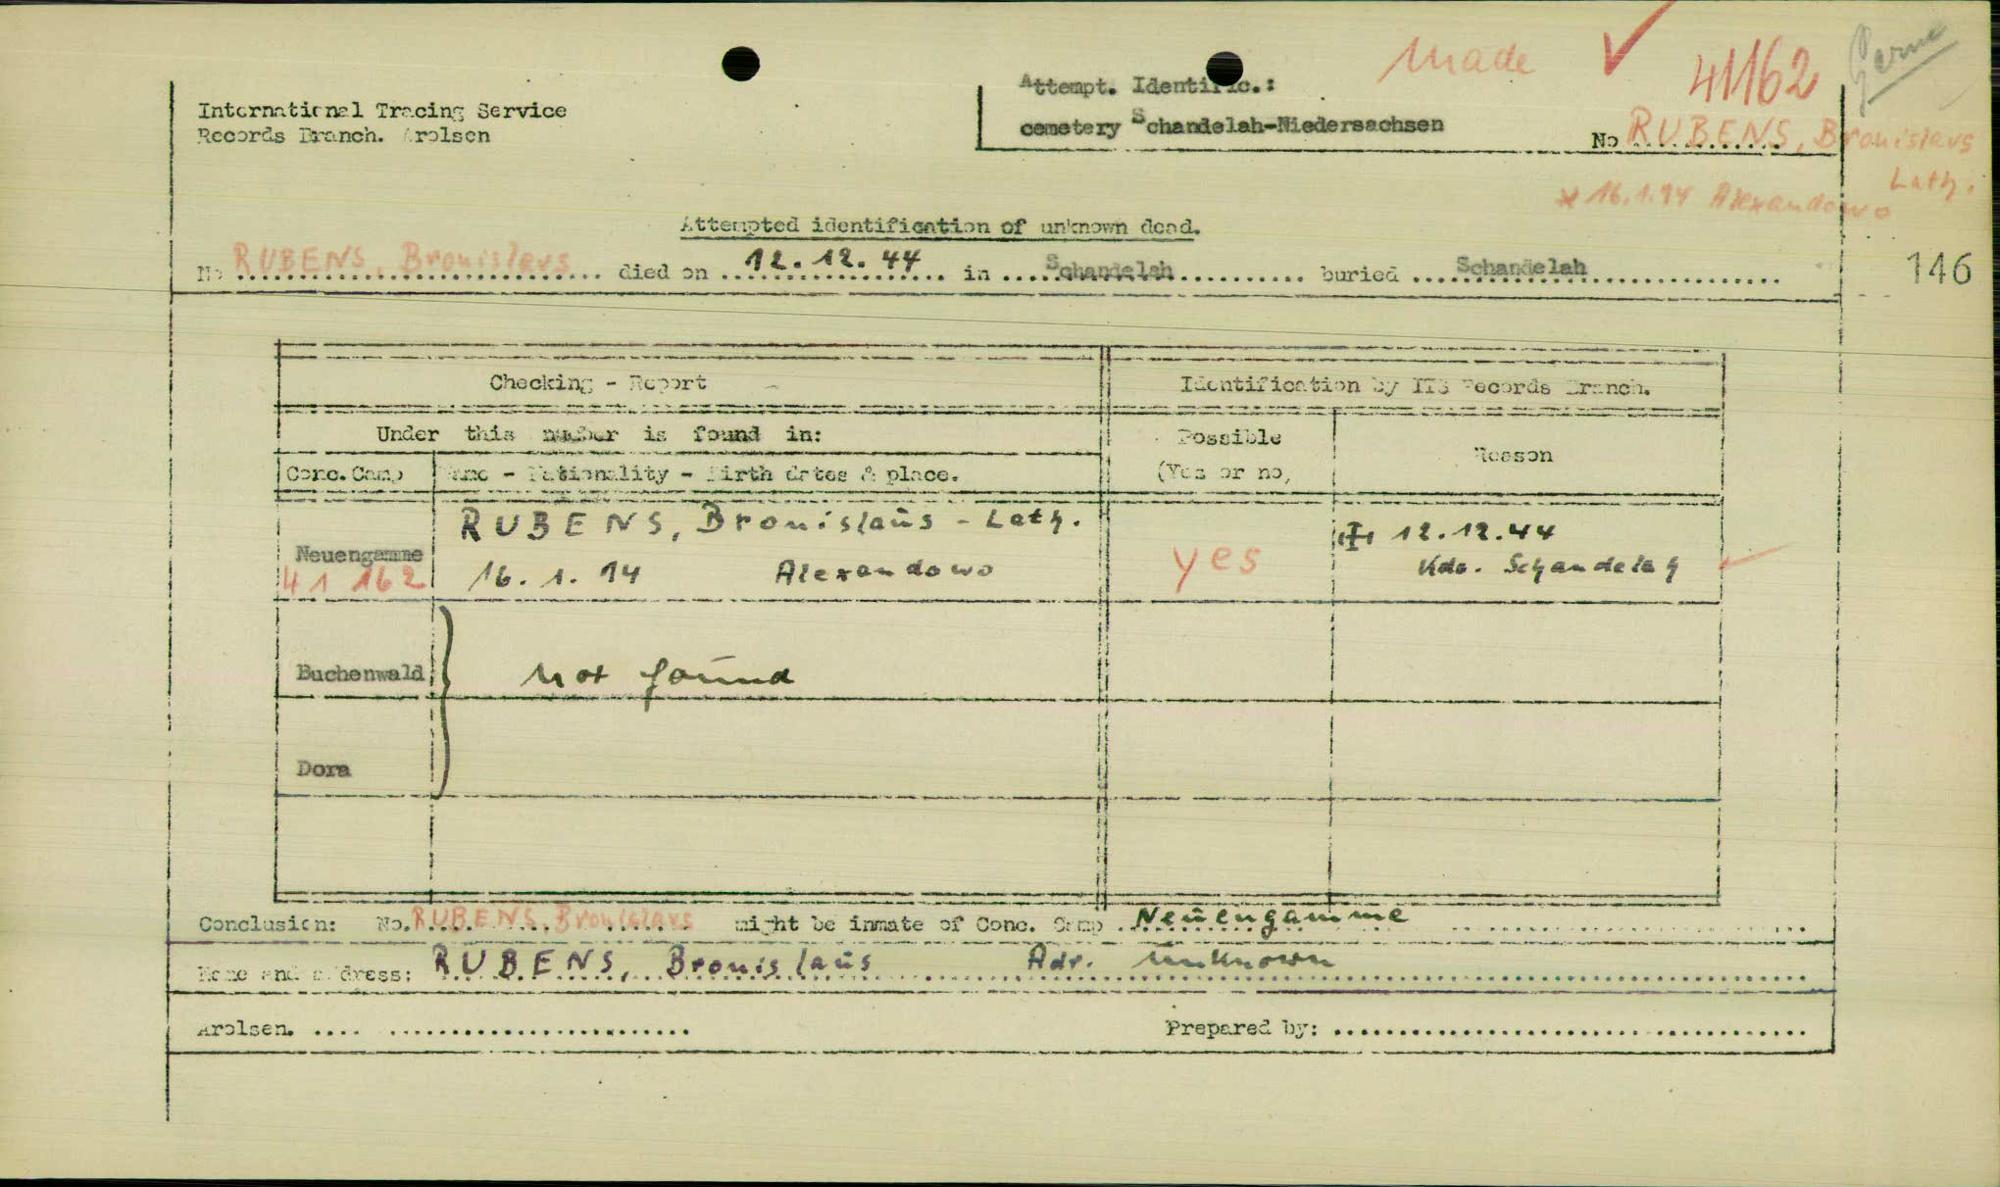 Made ✓ 41162
International Tracing Service
Records Branch. Arolsen
Attempt. Identific.:
cemetery Schandelah-Niedersachsen
No RUBENS, Bronislavs
Lath.
* 16.1.94 Alexandowo
Attempted identification of unknown dead.
No RUBENS, Bronislavs died on 12.12.44 in Schandelah buried Schandelah
146
Checking - Report
Identification by ITS Records Branch.
Under this number is found in:
Possible
(Yes or no,
Reason
Conc. Camp
Name - Nationality - Birth dates & place.
Neuengamme
41 162
RUBENS, Bronislaus - Leth.
16. 1. 94 Alexandowo
yes
12.12.44
Kdo. Schandelah
Buchenwald
not found
Dora
Conclusion: No. RUBENS, Bronislavs might be inmate of Conc. Camp Neuengamme
Name and address: RUBENS, Bronislaus Adr. unknown
Arolsen.
Prepared by: